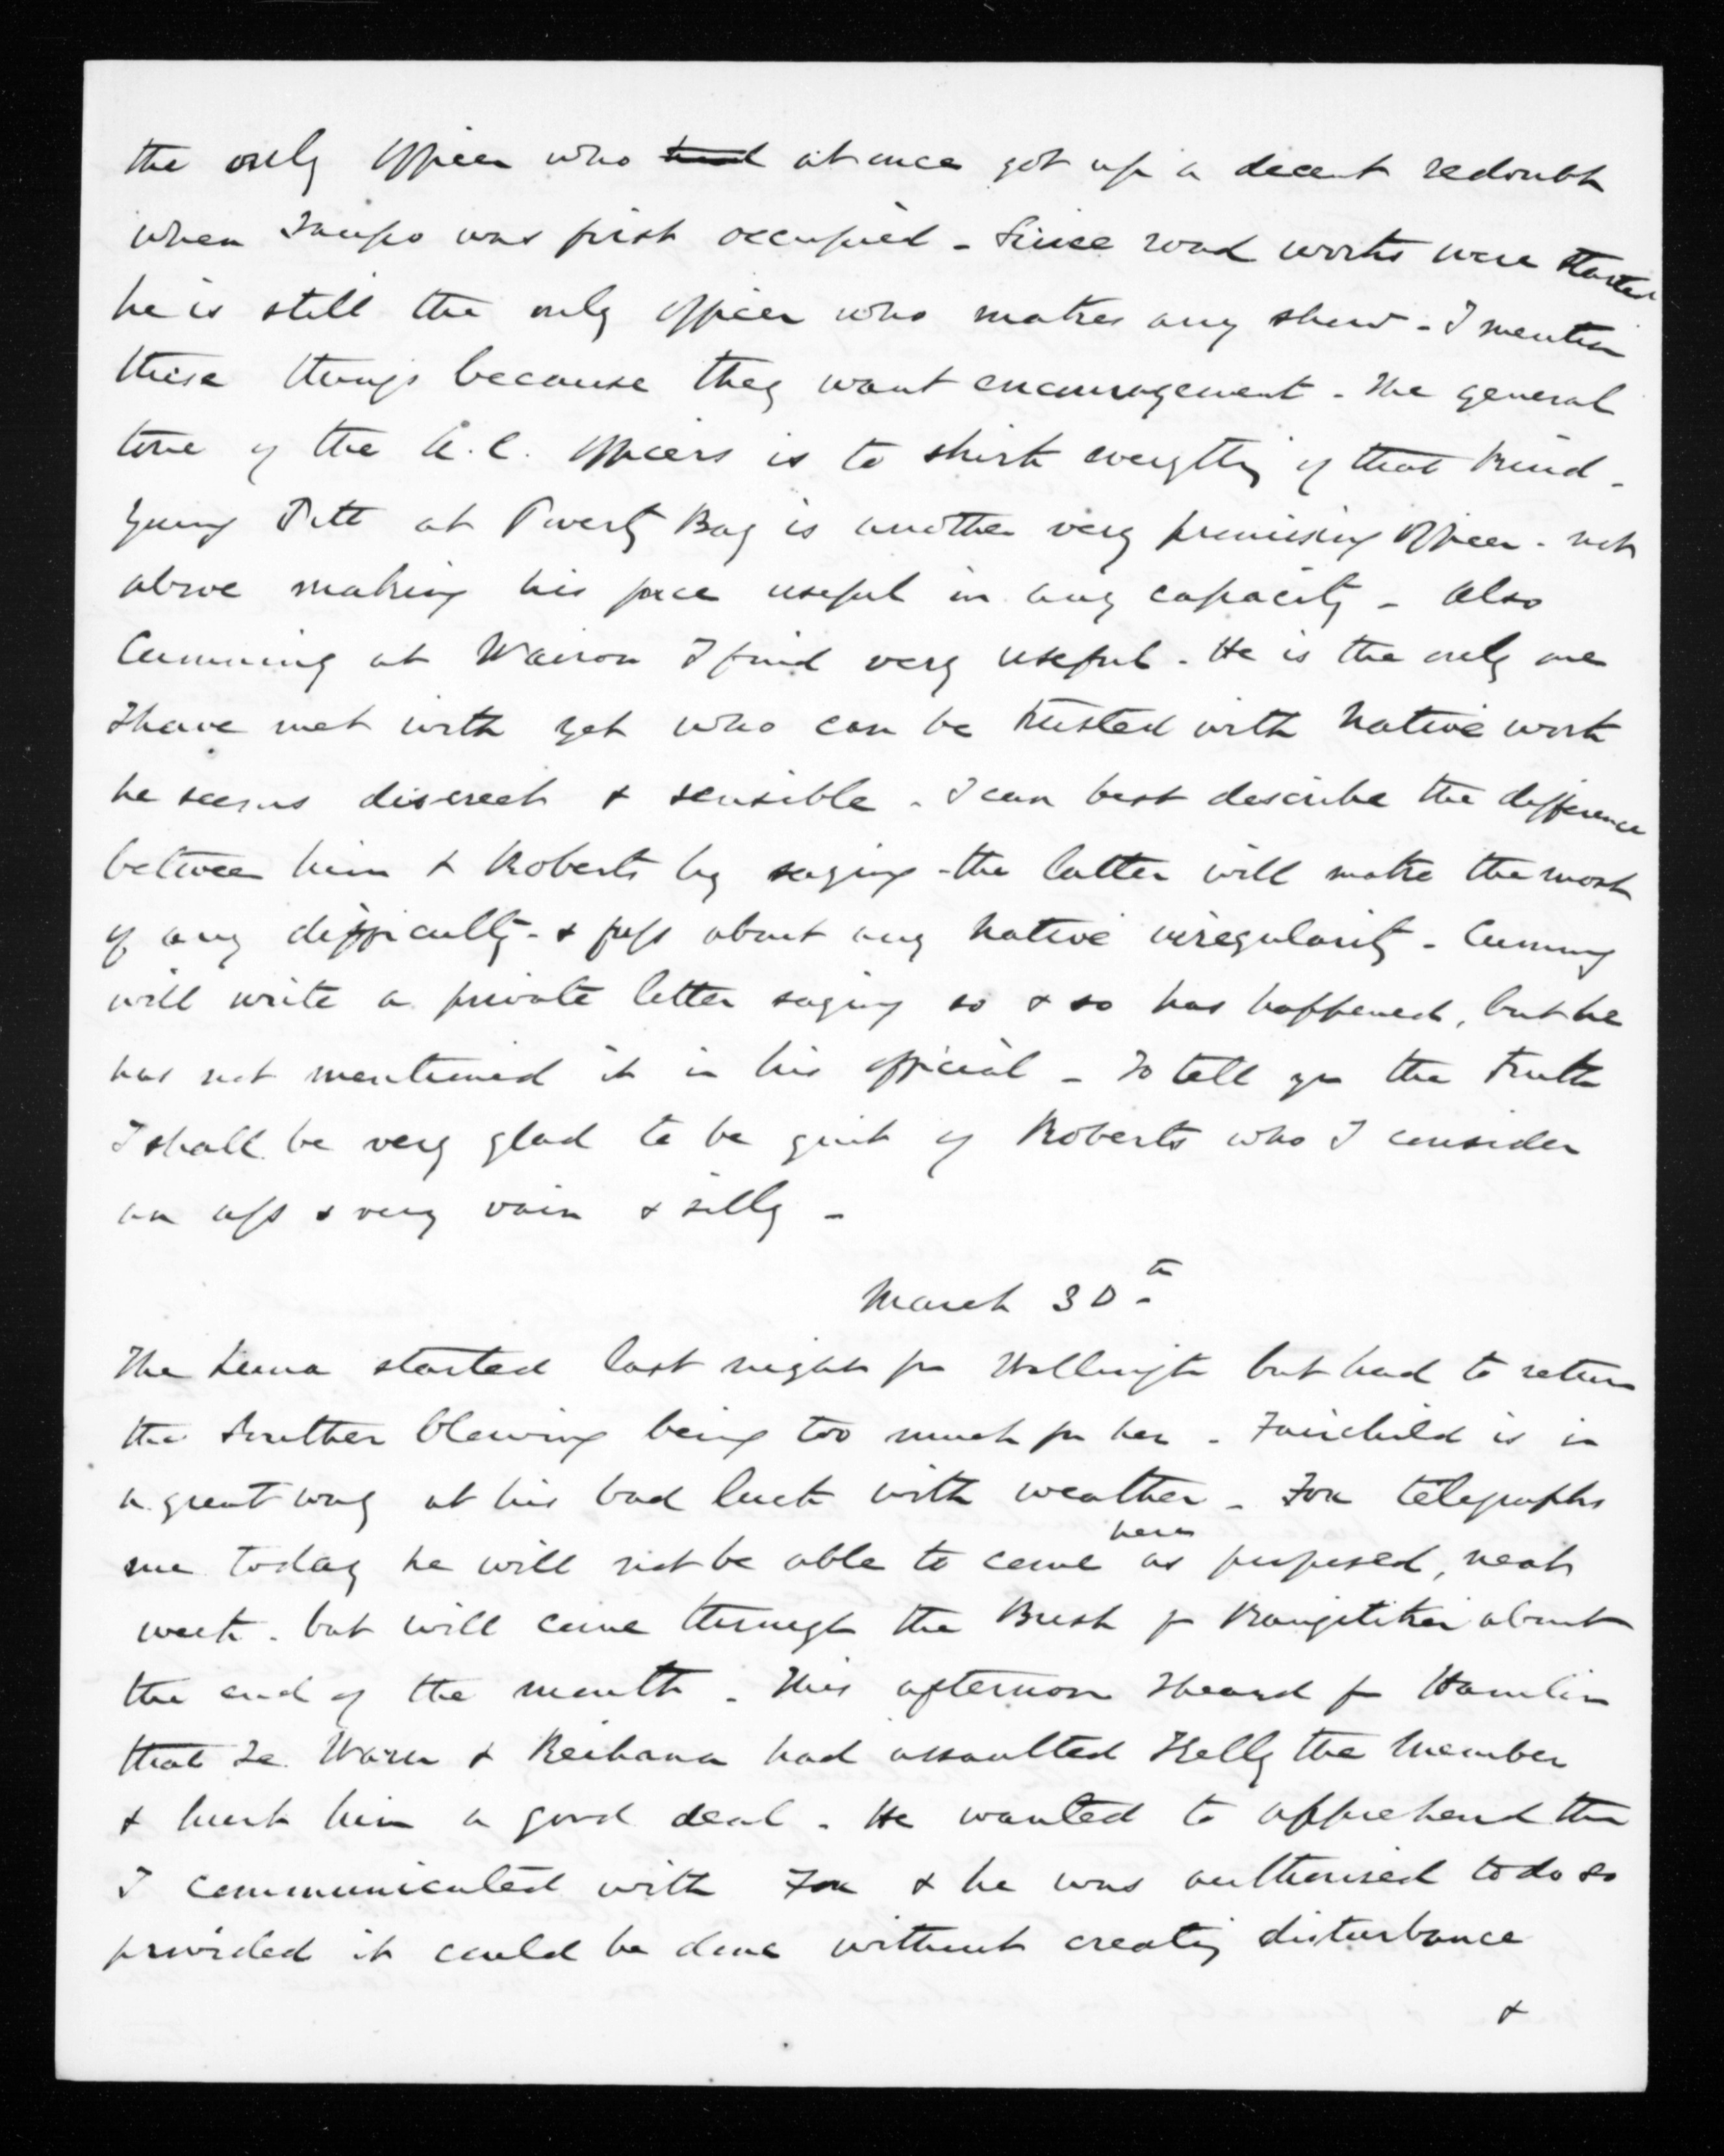 the only officer who had at once got up a decent redoubt
when Taupo was first occupied - Since road works were started
he is still the only officer who makes any show - I mention
these things because they want encouragement - The general
tone of the A.C. officers is to shirk everything of that kind -
Young Pitt at Poverty Bay is another very promising officer - not
above making his force useful in any capacity - Also
Cumming at Wairoa I find very useful - He is the only one
I have met with yet who can be trusted with Native work
he seems discreet & sensible - I can best describe the difference
between him & Roberts by saying - the latter will make the most
of any difficulty - & fuss about any Native irregularity - Cumming
will write a private letter saying so & so has happened, but he
has not mentioned it in his official - To tell you the truth
I shall be very glad to be quit of Roberts who I consider
an ass & very vain & silly -
March 30th
The Luna started last night for Wellington but had to return
the Souther blowing being too much for her - Fairchild is in
a great way at his bad luck with weather - Fox telegraphs
me today he will not be able to come here as proposed, next
week - but will come through the Bush fr Rangitikei about
the end of the month - This afternoon I heard fr Hamlin
that Te Waru & Reihana had assaulted Kelly the Member
& hurt him a good deal - He wanted to apprehend them
I communicated with Fox & he was authorised to do so
provided it could be done without creating disturbance
&